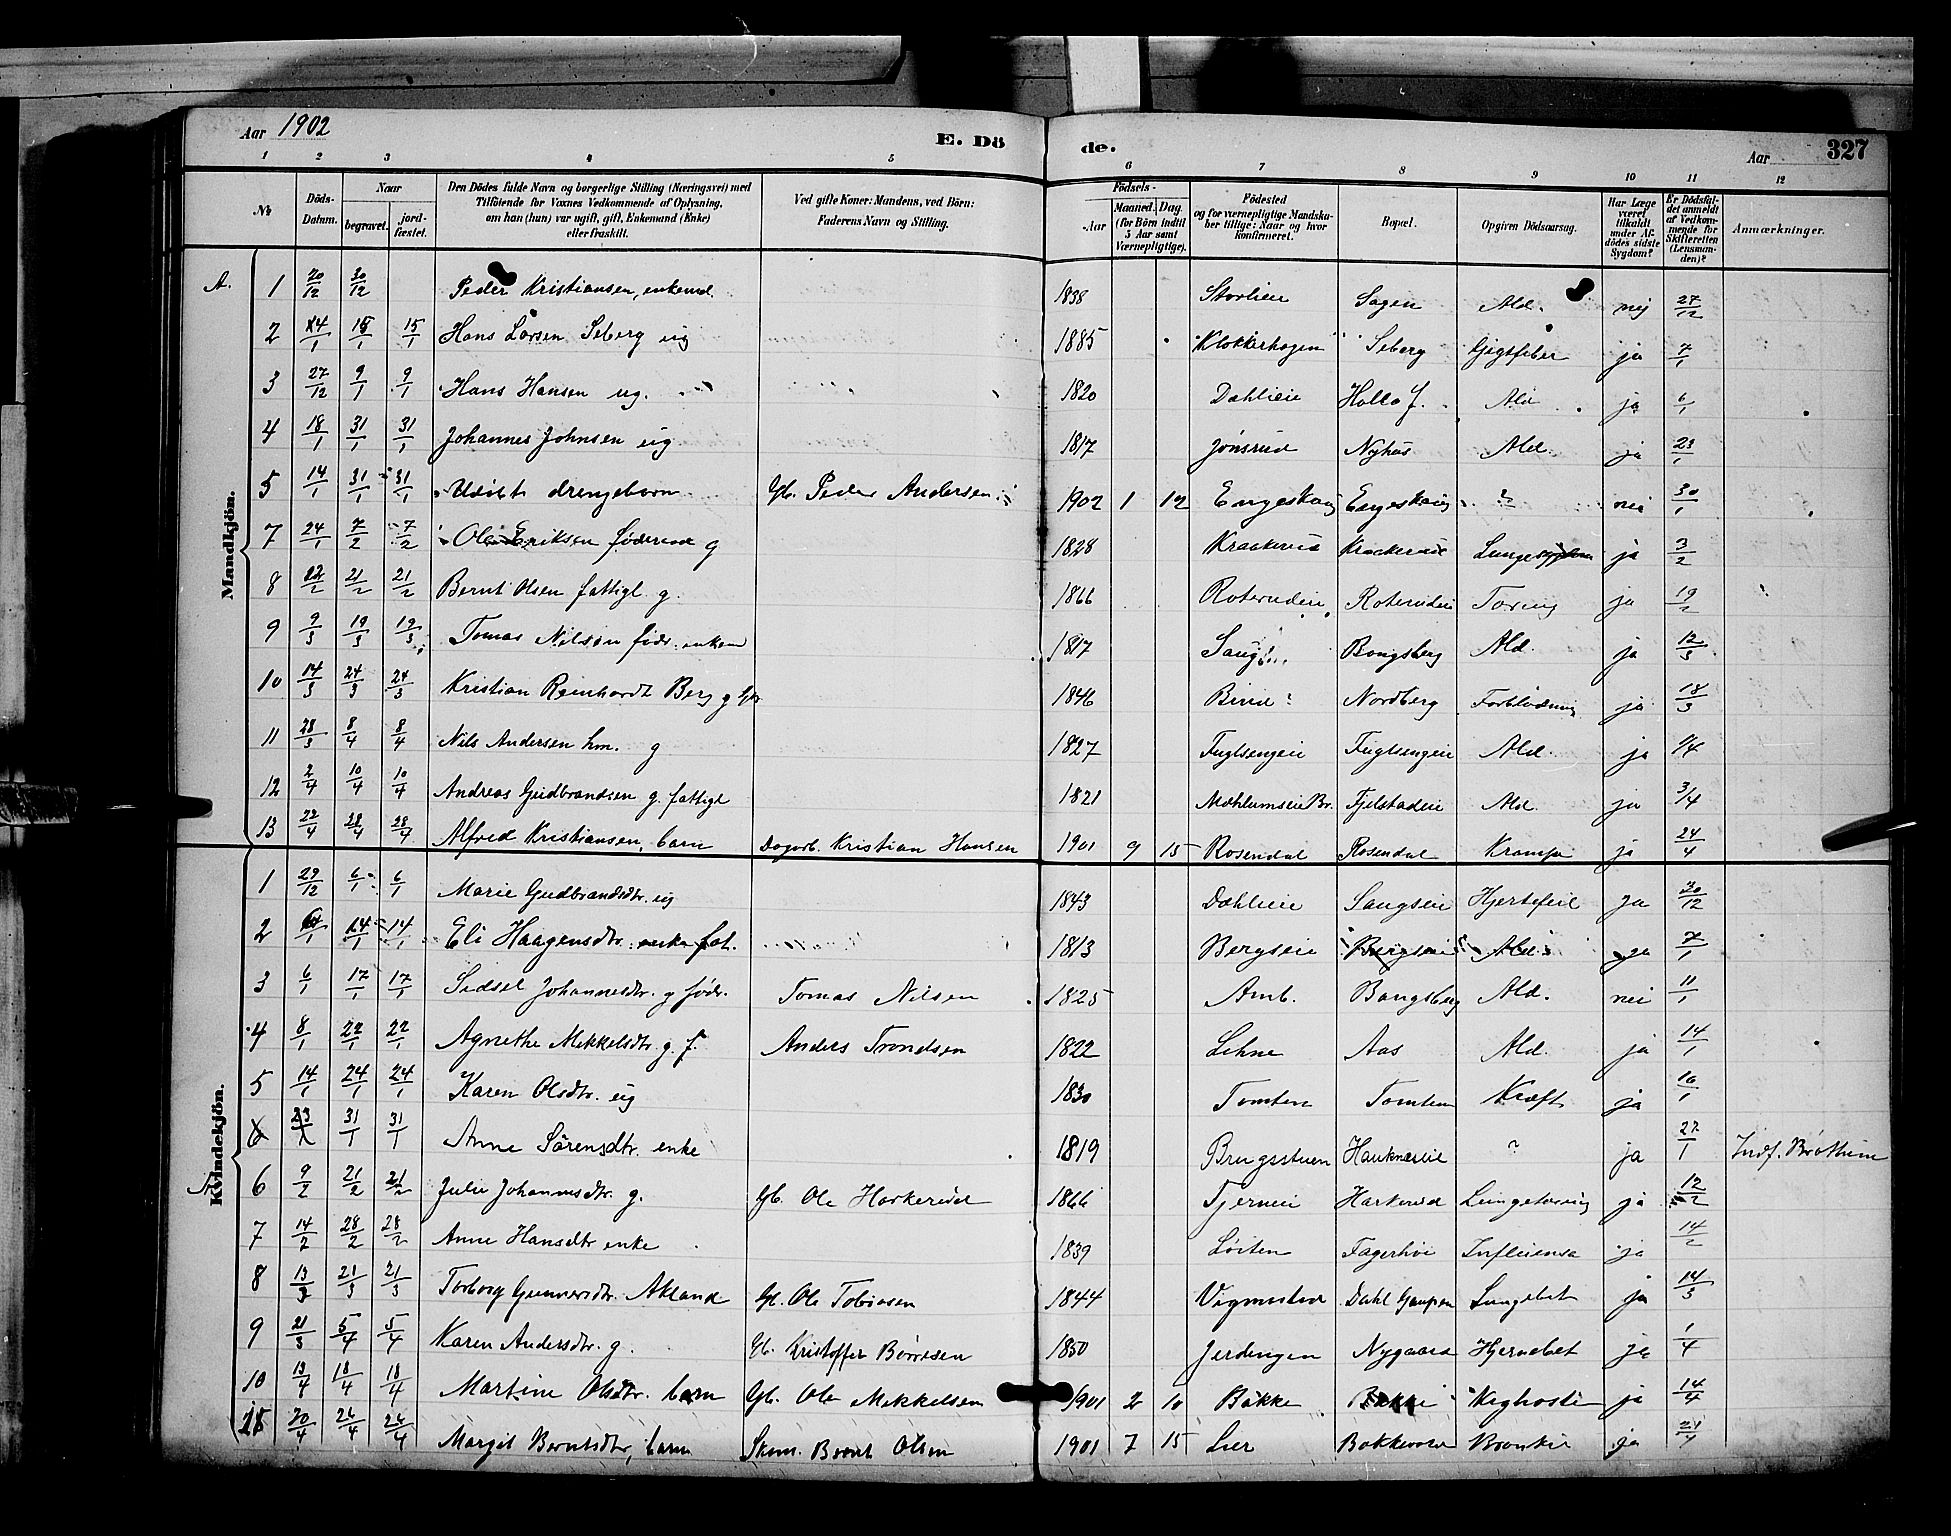 Aar 1902 E. Dö de. Aar 327
1 2 3 4 5 6 7 8 9 10 11 12
№ Döds-Datum. Naar begravet. jord-fæstet. Den Dödes fulde Navn og borgerlige Stilling (Næringsvei) med Tilföiende for Voxnes Vedkommende af Oplysning, om han (hun) var ugift, gift, Enkemand (Enke) eller fraskilt. Ved gifte Koner: Mandens, ved Börn: Faderens Navn og Stilling. Födsels-Aar Maaned. Dag. (for Börn indtil 5 Aar samt Værnepligtige). Födested og for værnepligtige Mandskaber tillige: Naar og hvor konfirmeret. Bopæl. Opgiven Dödsaarsag. Har Læge været tilkaldt under Afdödes sidste Sygdom? Er Dödsfaldet anmeldt af Vedkommende for Skifteretten (Lensmanden)? Anmærkninger.
Mandkjön.
A. 1 20/12 30/12 Peder Kristiansen, enkemd. 1838 Storlieie Sagen Ald. nej 27/12
2 4/1 15/1 15/1 Hans Larsen Seberg ug 1885 Klokkerhagen Seberg Gigtfeber ja 7/1
3 27/12 9/1 9/1 Hans Hansen ug. 1820 Dæhlieie Hollo f. Ald ja 6/1
4 18/1 31/1 31/1 Johannes Johnsen ug 1817 Jønsrud Nyhus Ald. ja 23/1
5 14/1 31/1 31/1 Udöbt drengebarn Gb. Peder Andersen 1902 1 12 Engeskaug Engeskaug ? nei 30/1
7 24/1 7/2 7/2 Ole Eriksen föderaad g 1828 Kraakerud Kraakerud ja 3/2
8 12/2 21/2 21/2 Bernt Olsen fattigl. g. 1866 Roterudeie Roterudeie Tæring ja 19/2
9 9/3 19/3 19/3 Tomas Nilsen födr. enkem 1817 Saug Bangsberg Ald. ja 12/3
10 14/3 24/3 24/3 Kristian Reinhardt Berg g 1846 Nordberg Forblödning ja 18/3
11 28/3 8/4 8/4 Nils Andersen hm. g 1827 Fuglsengeie Fuglsengeie Ald. ja 1/4
12 2/4 10/4 10/4 Andreas Gudbrandsen g. fattigl 1821 Mæhlumseie Br. Fjelstadeie Ald ja 3/4
13 22/4 28/4 28/4 Alfred Kristiansen, barn Dagarb. Kristian Hansen 1901 9 15 Rosendal Rosendal Krampe ja 24/4
Kvindekjön.
1 29/12 6/1 6/1 Marie Gudbrandsdtr. ug 1843 Dæhlieie Saugseie Hjertefeil ja 30/12
2 14/1 14/1 Eli Haagensdtr. enke fat. 1813 Bergseie Bergseie Ald. ja 7/1
3 6/1 17/1 17/1 Sidsel Johannesdtr. g födr. Tomas Nilsen 1825 Amb. Bangsberg Ald. nei 11/1
4 8/1 22/1 22/1 Agnethe Mikkelsdtr. g. f. Anders Trondsen 1822 Lehne Aas Ald. ja 14/1
5 14/1 24/1 24/1 Karen Olsdtr. ug 1830 Tomten Tomten Kræft ja 16/1
6 31/1 31/1 Anne Sörensdtr. enke 1819 Brugsstuen ? ja 27/1 Indf. Brøttum
6 9/2 21/2 21/2 Julie Johannesdtr. g. Gb. Ole Harkerud 1866 Tjerneie Harkerud Lungetæring ja 12/2
7 14/2 28/2 28/2 Anne Hansdtr enke 1839 Löiten Fagerhöi Influensa ja 14/2
8 13/3 21/3 21/3 Torborg Gunnersdtr. Akland Gb. Ole Tobiasen 1844 Vigmostad Dahl Gaupen Lungebet ja 14/3
9 21/3 5/4 5/4 Karen Andersdtr. g. Gb. Kristoffer Børresen 1850 Jerdingen Nygaard Hjernebet ja 1/4
10 13/4 18/4 18/4 Martine Olsdtr. barn Gb. Ole Mikkelsen 1901 2 10 Bakke Bakke Kighoste ja 14/4
20/4 26/4 26/4 Margit Berntsdtr, barn Skom. Bernt Olsen 1901 7 15 Lier ja 21/4